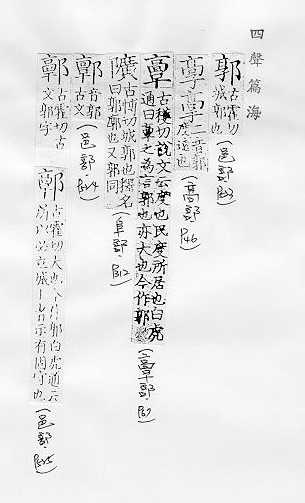 四聲篇海
郭 古霍切
城郭也 (邑部.
二音郭 (高部.P46)
古穫切說文云度也民度所居也白虎
通曰𩫏之為言郭也亦大也今作郭
古博切城郭也
曰郭廓也又郭同 (阜部.P12)
音郭
古文 (邑部.
古霍切古
文郭字
古霍切大也 郭白虎通云
所以必立城 示有固守也 (邑部.